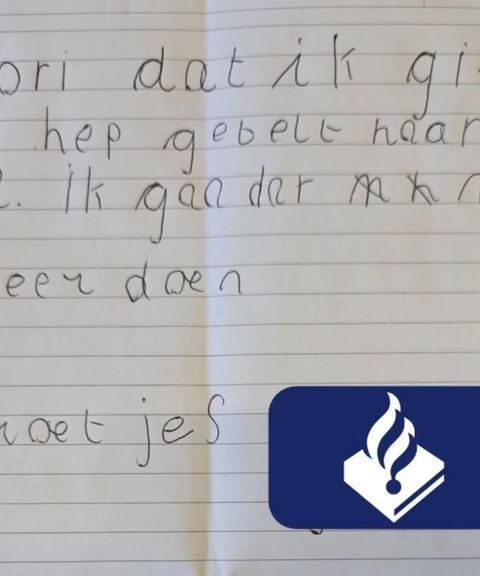 ori dat ik gi
hep gebelt naar
. ik gaa dar
eer doen
oet jes